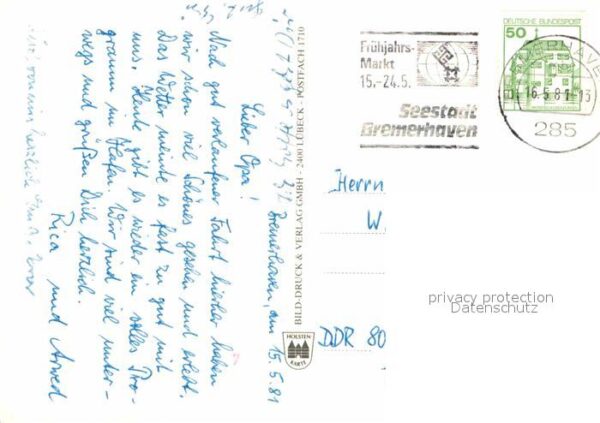 Bremerhaven, am 15.5.81
Lieber Opa!
Nach gut verlaufener Fahrt hierher haben
wir schon viel Schönes gesehen und erlebt.
Das Wetter meinte es fast zu gut mit
uns. Heute gibt es wieder ein volles Pro-
gramm im Hafen. Wir sind viel unter-
wegs und grüßen Dich herzlich.
Rica und Arwed
BILD-DRUCK & VERLAG GMBH · 2400 LÜBECK · POSTFACH 1710
HOLSTEN
KARTE
Frühjahrs-
Markt
15.-24.5.
Seestadt
Bremerhaven
DEUTSCHE BUNDESPOST
50
16.5.81-13
285
Herrn
W
DDR 80
privacy protection
Datenschutz